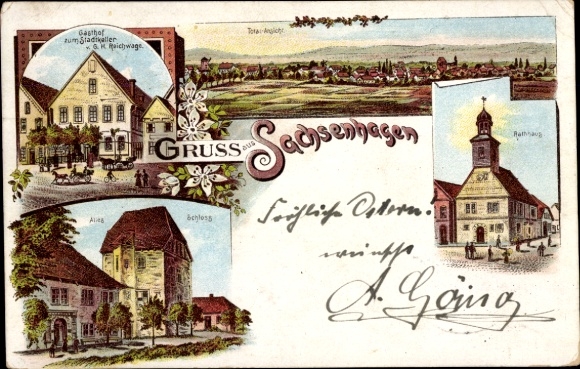 Gasthof
zum Stadtkeller
v. G. H. Reichwage.
Total-Ansicht
GRUSS aus Sachsenhagen
Rathhaus
Altes Schloss
Fröhliche Ostern.
wünscht
A.